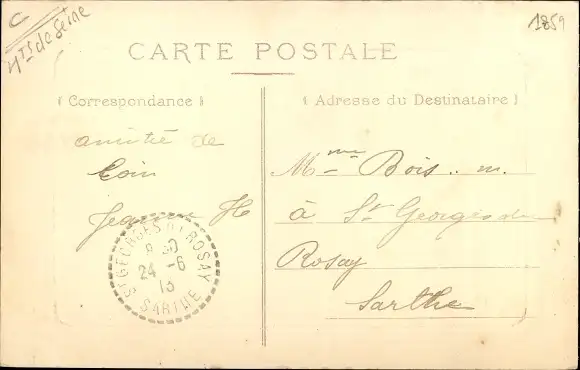 C
Hts de Seine
1859
CARTE POSTALE
Correspondance
Adresse du Destinataire
amitié de
loin
Jeanne H
Mme Bois
à St Georges du
Rosay
Sarthe
ST GEORGES DU ROSAY
24 -6
13
SARTHE